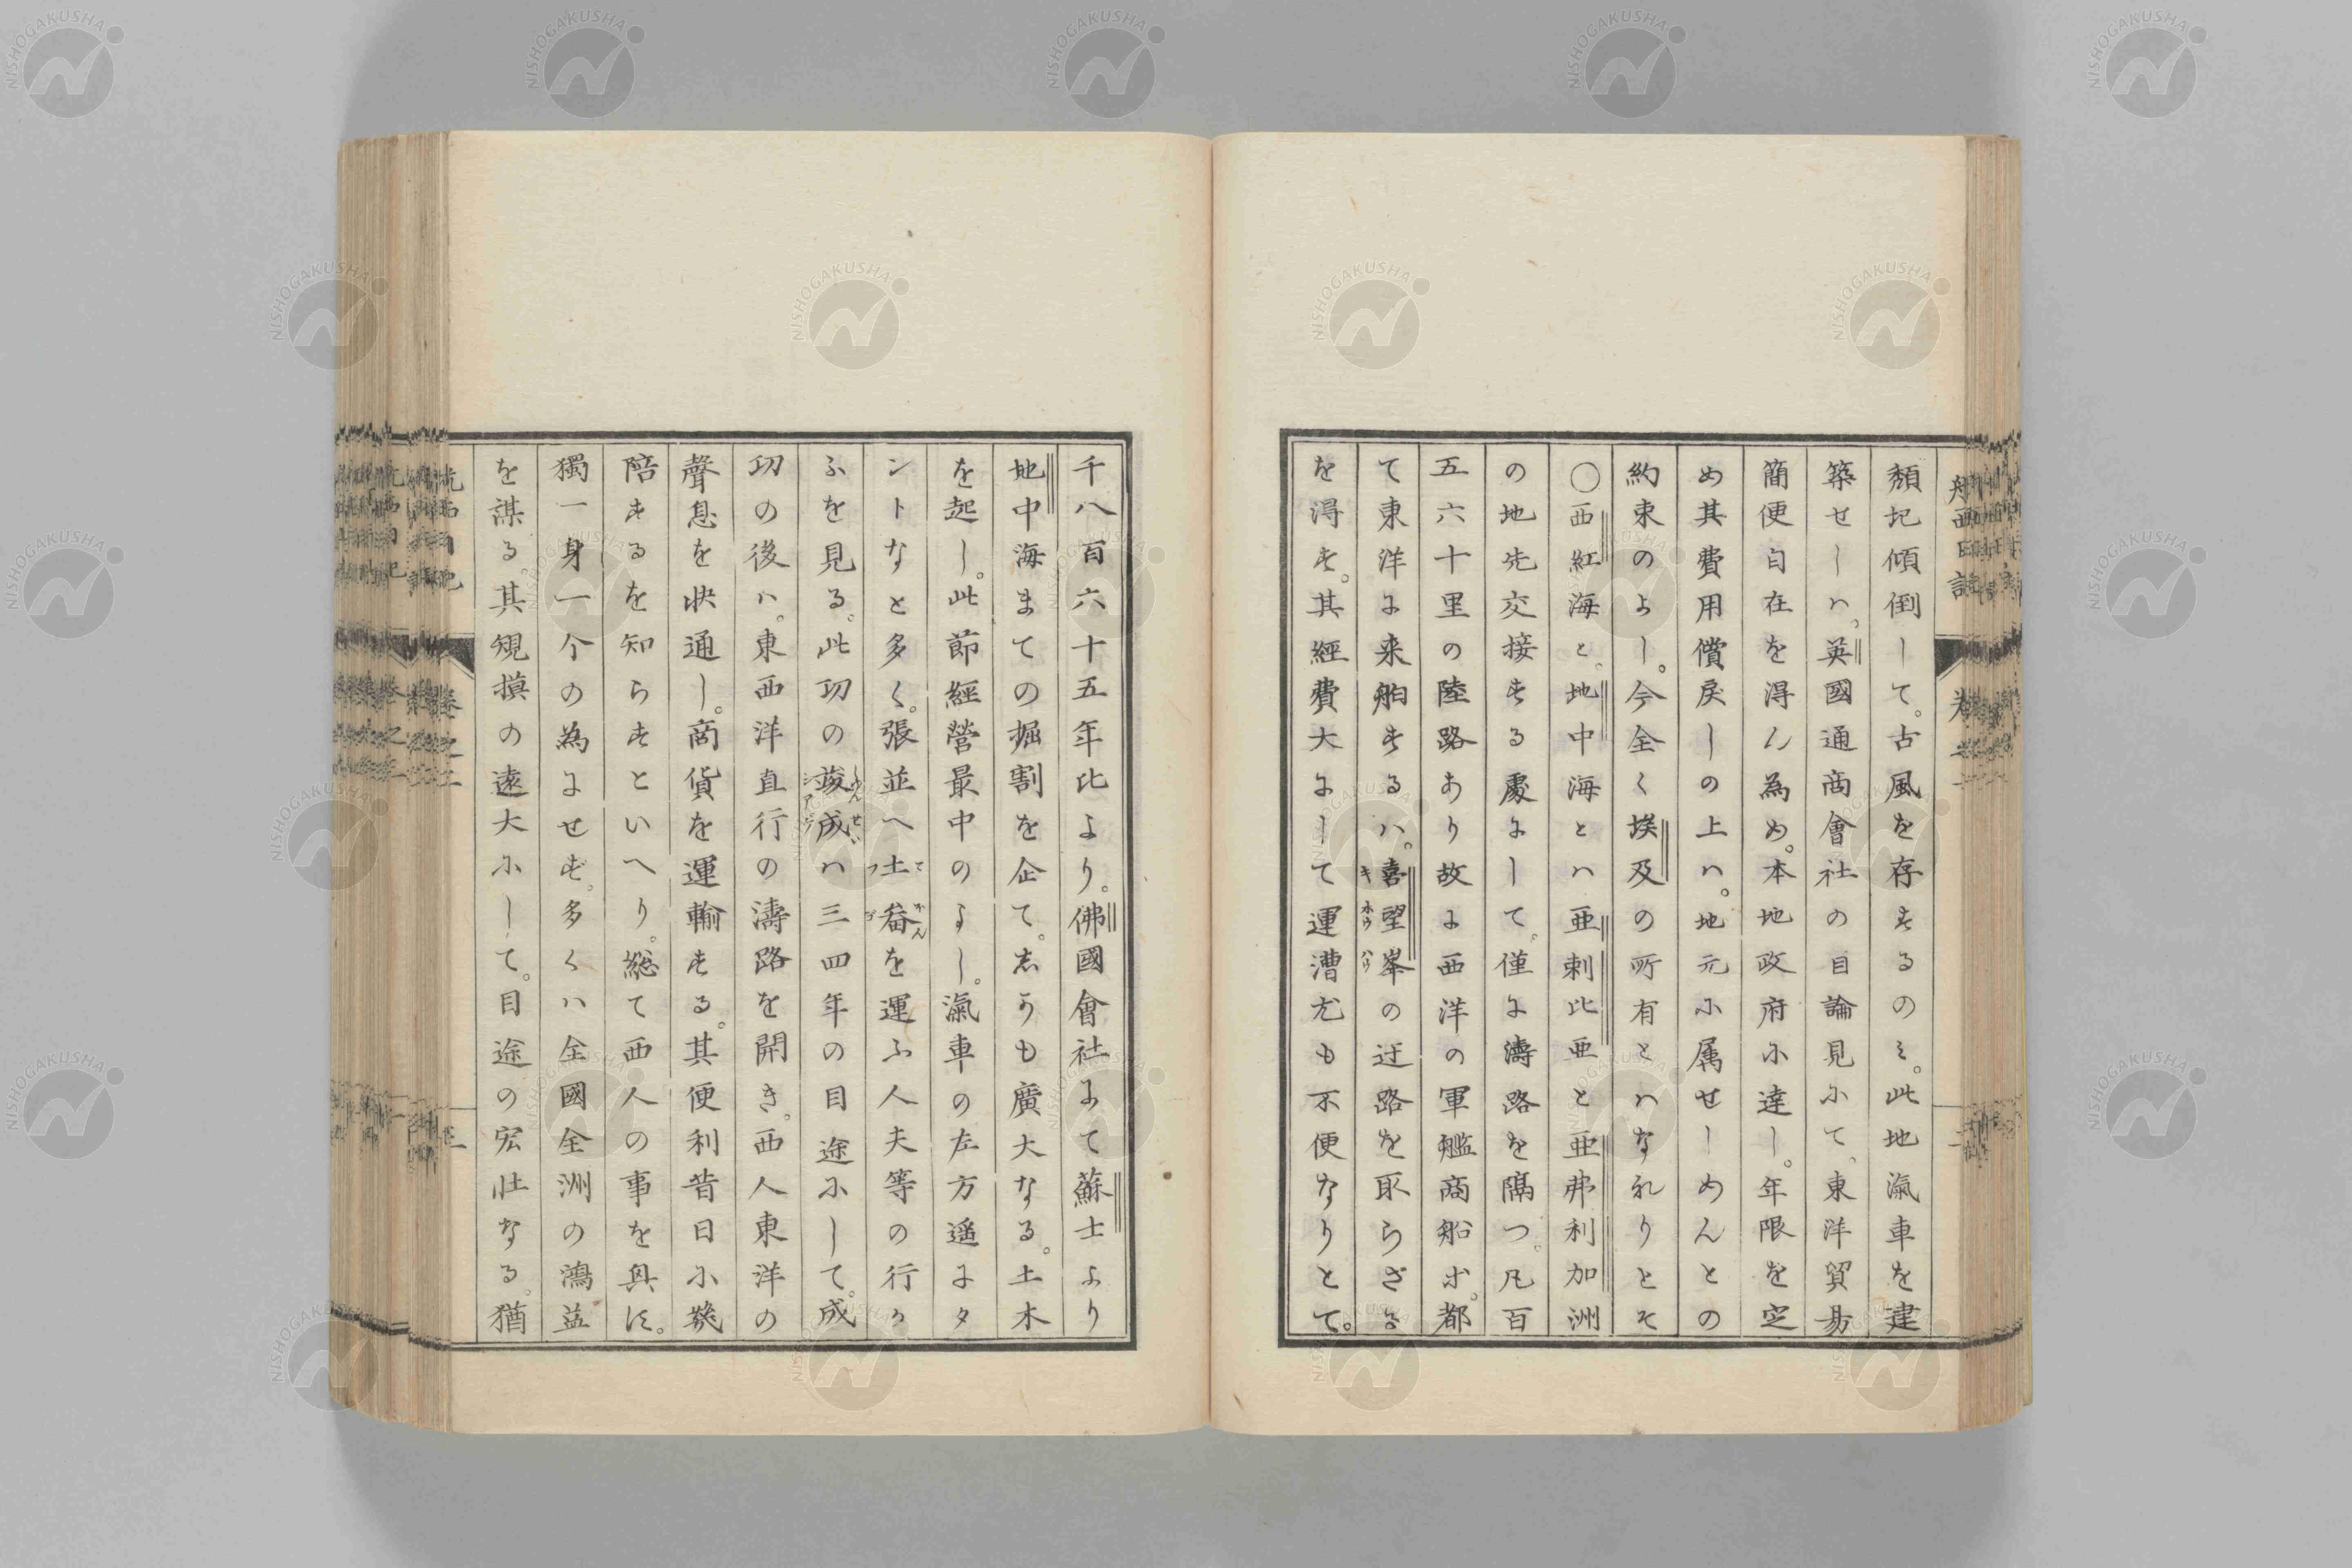 頽圮傾倒して。古風を存するのミ。此地滊車を建
築せしハ。英國通商會社の目論見にて、東洋貿易
簡便自在を得ん為め。本地政府に達し。年限を定
め其費用償戻しの上ハ。地元に属せしめんとの
約束のよし。今全く埃及の所有とハなれりとそ
〇西紅海と。地中海とハ亜剌比亜と亜弗利加洲
の地先交接する處にして。僅に濤路を隔つ。凡百
五六十里の陸路あり故に西洋の軍艦商船ホ。都
て東洋に来舶するハ。喜望峯の迂路を取らざる
を得す。其經費大にして運漕尤も不便なりとて。
千八百六十五年比より。佛國會社にて蘇士より
地中海まての掘割を企て。志かも廣大なる。土木
を起し。此節經營最中のよし。滊車の左方遥にタ
ントなと多く。張並へ土畚を運ふ人夫等の行か
ふを見る。此功の竣成ハ三四年の目途にして。成
功の後ハ。東西洋直行の濤路を開き。西人東洋の
聲息を快通し。商貨を運輸する。其便利昔日に幾
陪するを知らすといへり。総て西人の事を具ふ。
獨一身一个の為にせす。多くハ全國全洲の鴻益
を謀る其規摸の遠大にして。目途の宏壮なる。猶
キホウハウ
てかん
つゞ
しゆんせい
NISHOGAKUSHA